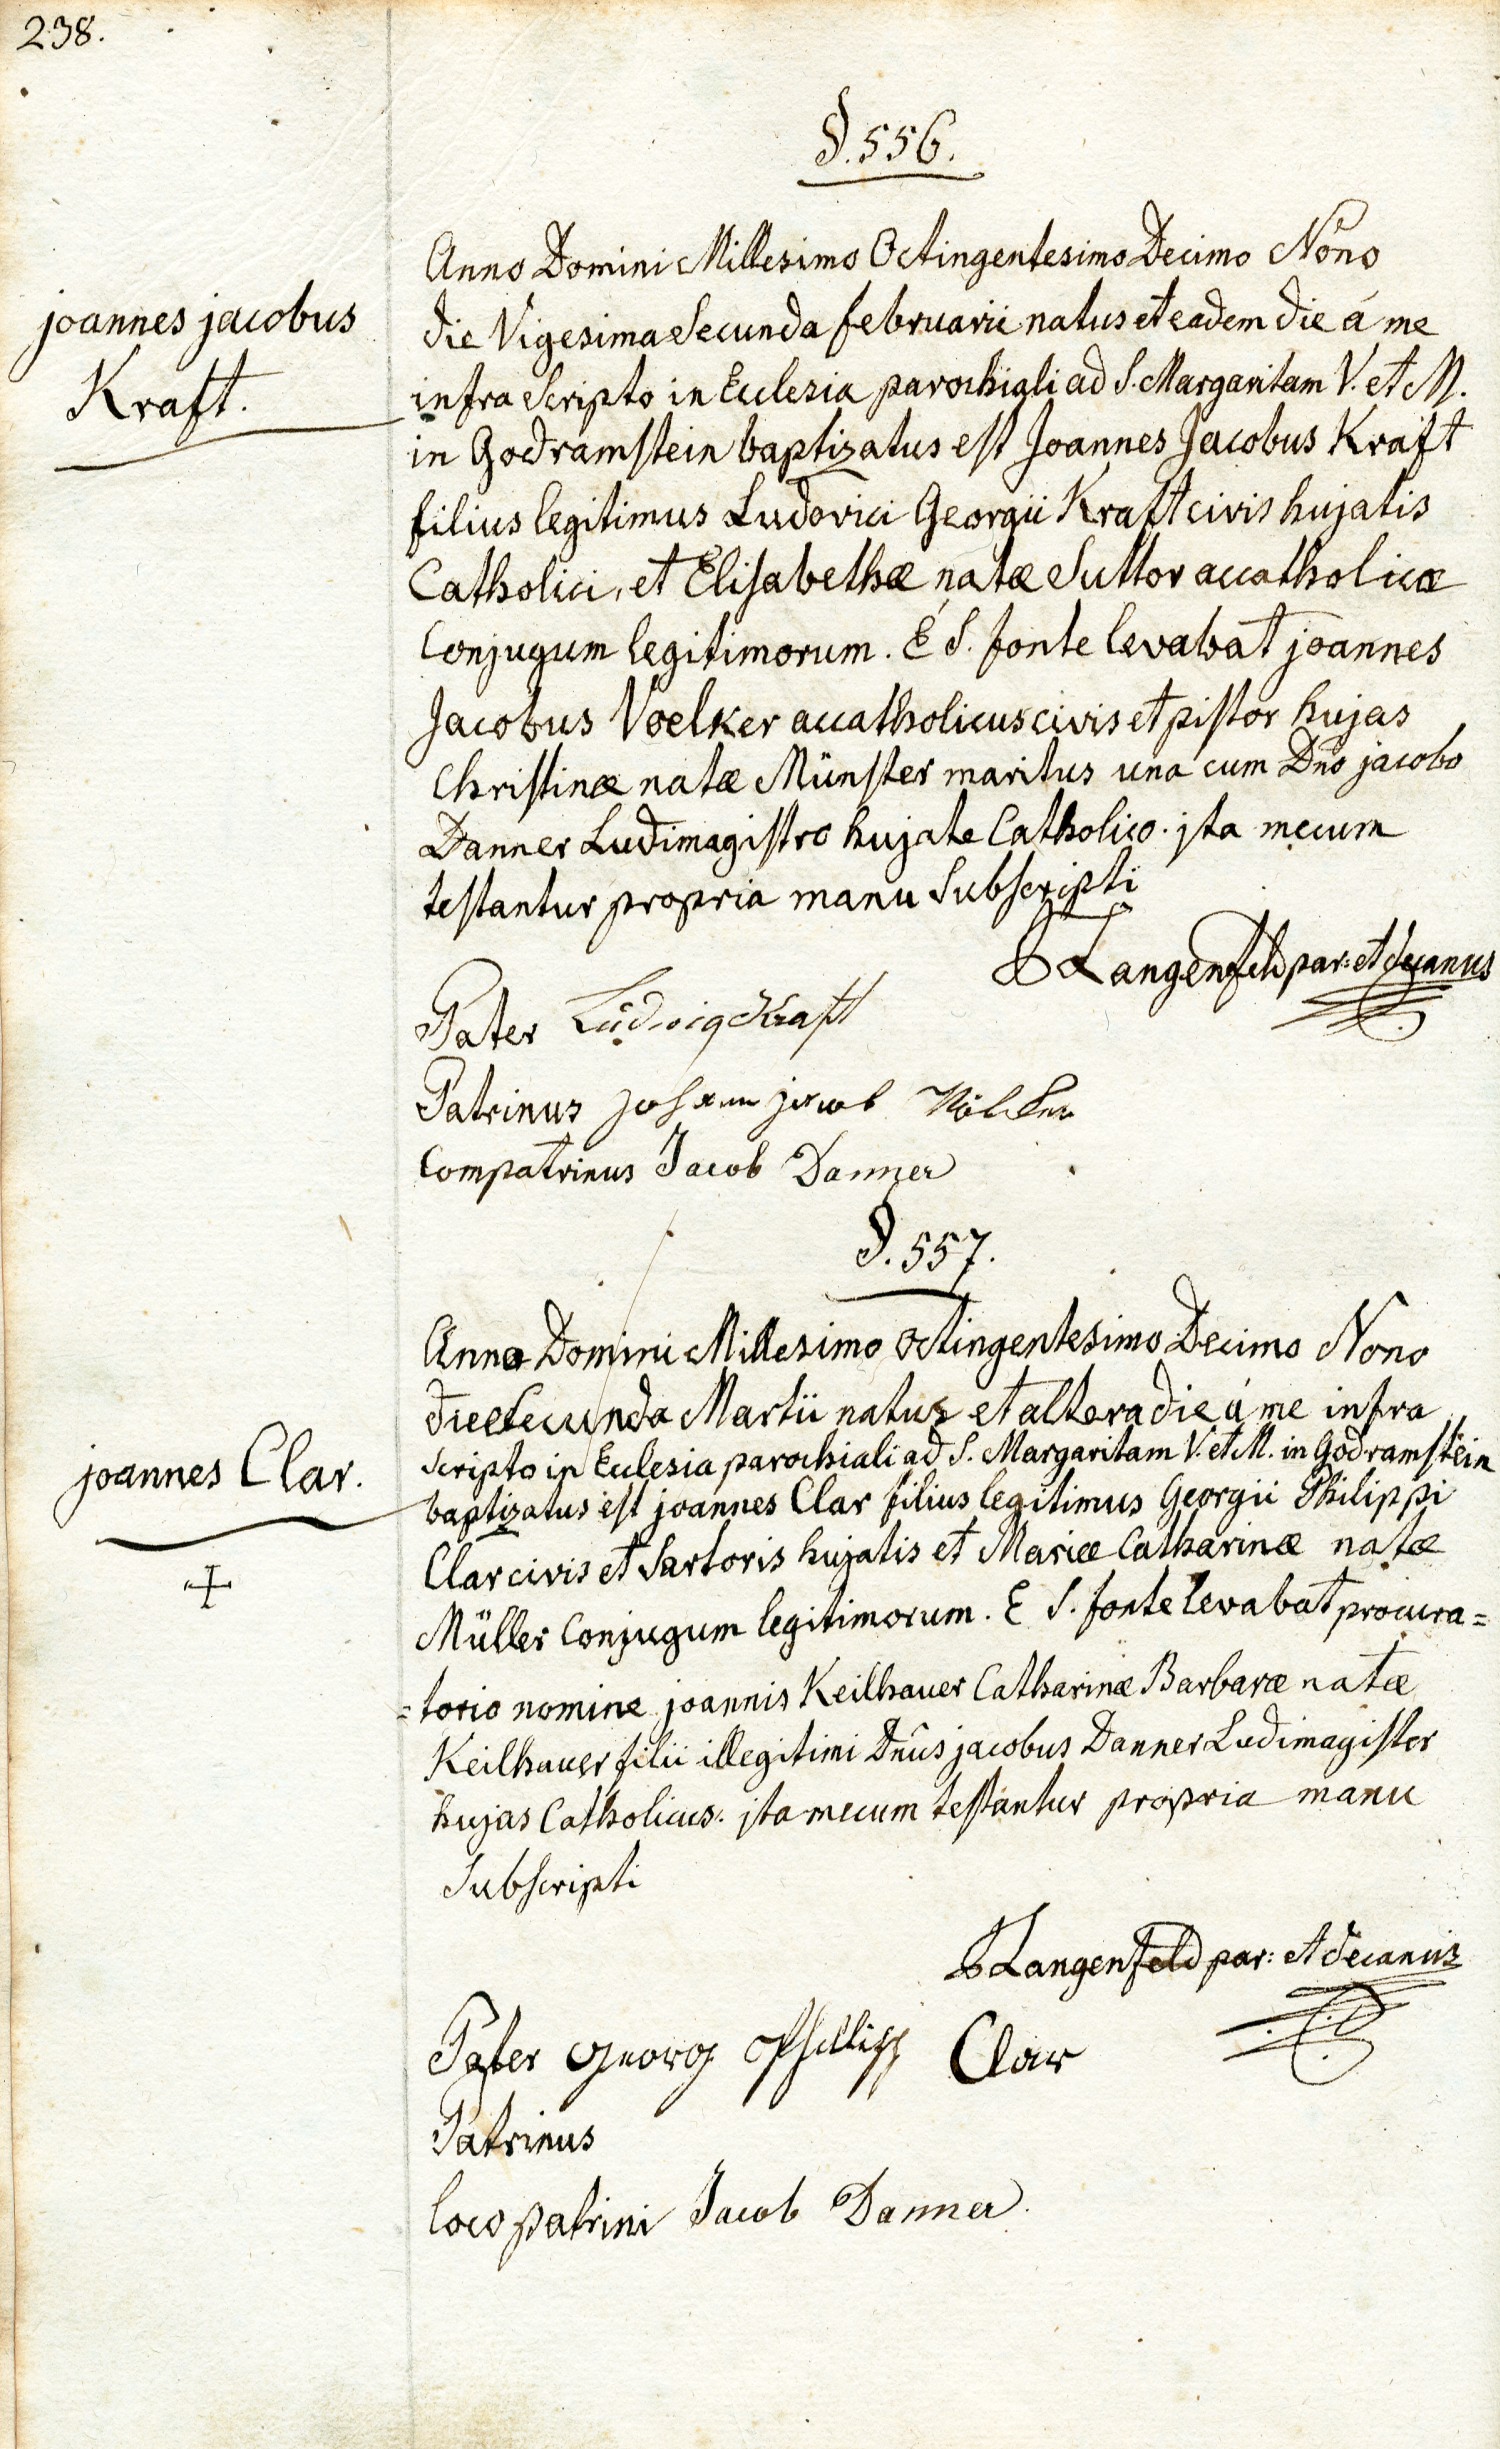 238.
§. 556.
joannes jacobus
Kraft.
Anno Domini Millesimo Octingentesimo Decimo Nono
die Vigesima Secunda februarii natus et eadem die á me
infra scripto in Ecclesia parochiali ad S. Margaritam V. et M.
in Godramstein baptizatus est Joannes Jacobus Kraft
filius legitimus Ludovici Georgii Kraft civis hujatis
Catholici, et Elisabethæ natæ Suttor accatholicæ
Conjugum legitimorum. É S. fonte levabat joannes
Jacobus Voelker accatholicus civis et pistor hujas
Christinæ natæ Münster maritus una cum Dno jacobo
Danner Ludimagistro hujate Catholico. jta mecum
testantur propria manu Subscripti
Langenfeld par: et decanus
Pater Ludwig Kraft
Patrinus Johann jacob Völcker
Compatrinus Jacob Danner
§. 557.
joannes Clar.
Anno Domini Millesimo Octingentesimo Decimo Nono
die Secunda Martii natus et altera die á me infra
scripto in Ecclesia parochiali ad S. Margaritam V. et M. in Godramstein
baptizatus est joannes Clar filius legitimus Georgii Philippi
Clar civis et Sartoris hujatis et Mariæ Catharinæ natæ
Müller Conjugum legitimorum. E S. fonte levabat procura=
=torio nomine joannis Keilhauer Catharinæ Barbaræ natæ
Keilhauer filii illegitimi Dnûs jacobus Danner Ludimagister
hujas Catholicus. jta mecum testantur propria manu
Subscripti
Langenfeld par: et decanus
Pater Georg Phillipp Clar
Patrinus
loco patrini Jacob Danner.